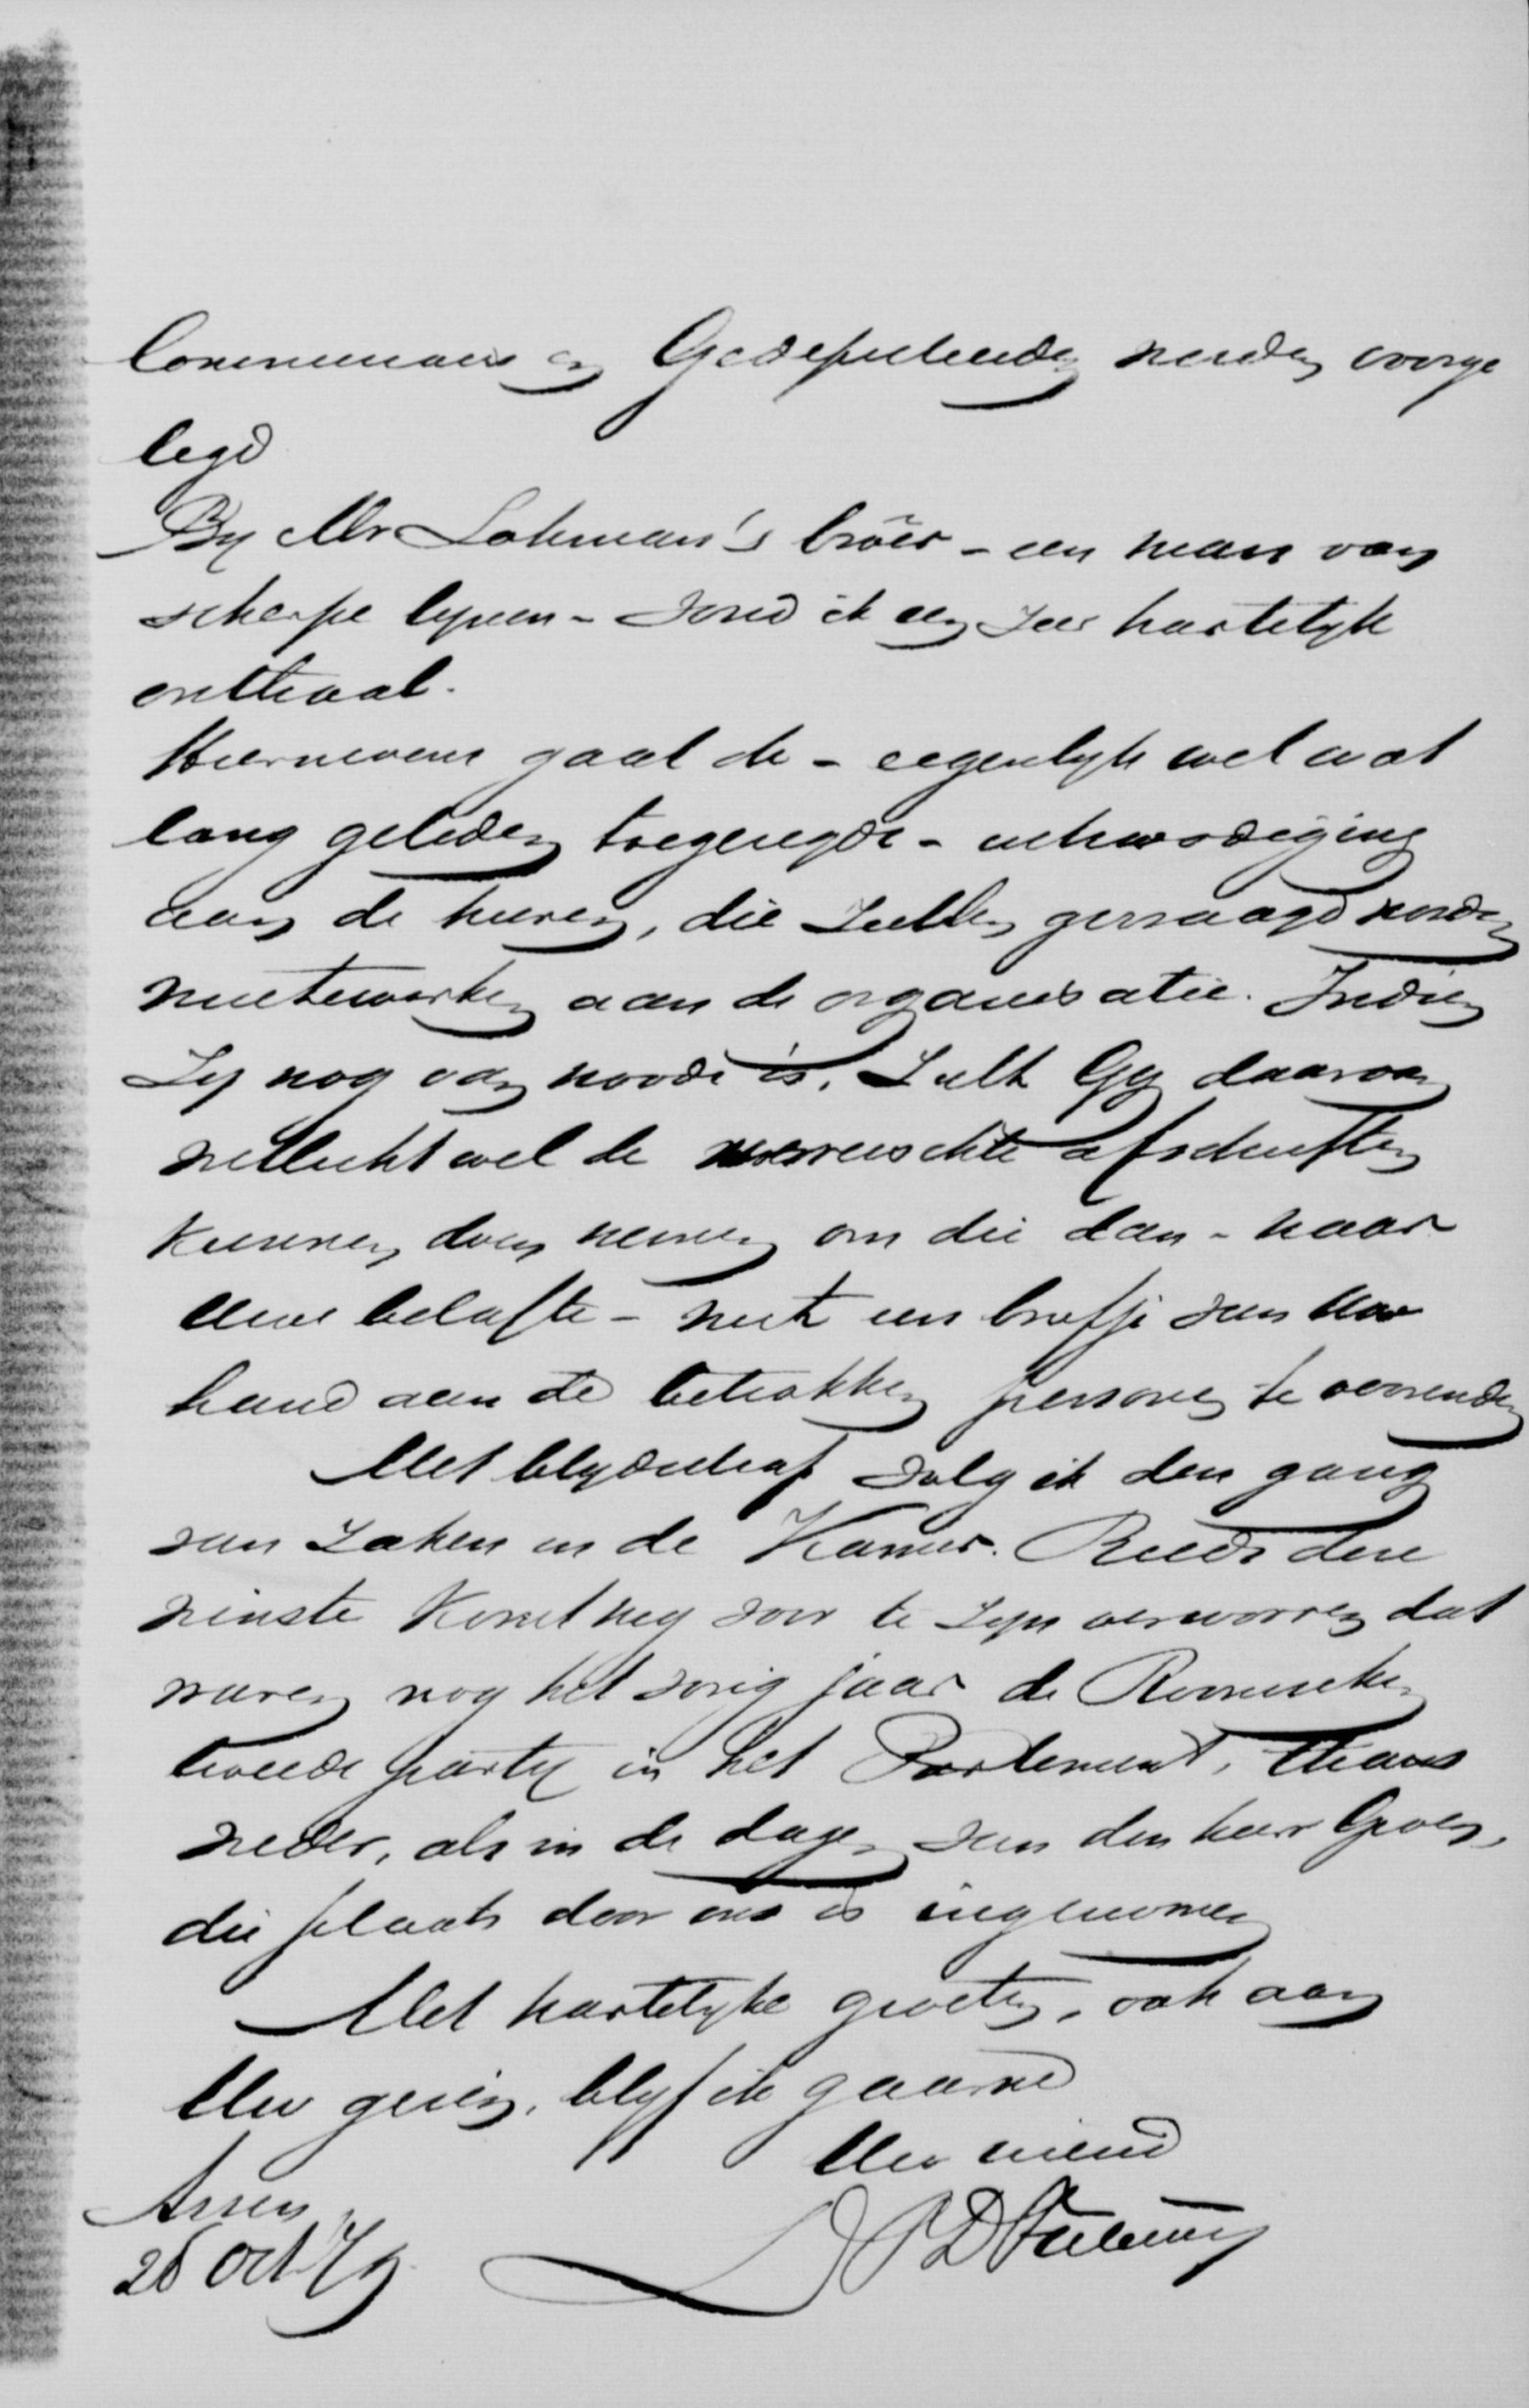 Commissaris en Gedeputeerden worden voorge
legd
By Mr Lohman's broêr - een man van
scherpe lynen - vond ik een zeer hartelyk
onthaal.
Hiernevens gaat de - eigenlyk wel wat
lang geleden toegezegde - uitnoodiging
aan de heeren, die zullen gevraagd worden
meetewerken aan de organisatie. Indien
zy nog van noode is, zult Gy daarvan
wellicht wel de vereischte afschriften
kunnen doen nemen om die dan - naar
Uwe belofte - met een briefje van Uw
hand aan de betrokken personen te verzenden
Met blydschap volg ik den gang
van zaken in de Kamer. Reeds deze
winste komt my voor te zyn verworven dat
waren nog het vorig jaar de Roomschen
tweede party in het Parlement, thans
weder, als in de dagen van den heer Groen,
die plaats door ons is ingenomen
Met hartelyke groeten, ook aan
Uw gezin, blyf ik gaarne
Uw vriend
Assen
28 Oct 79